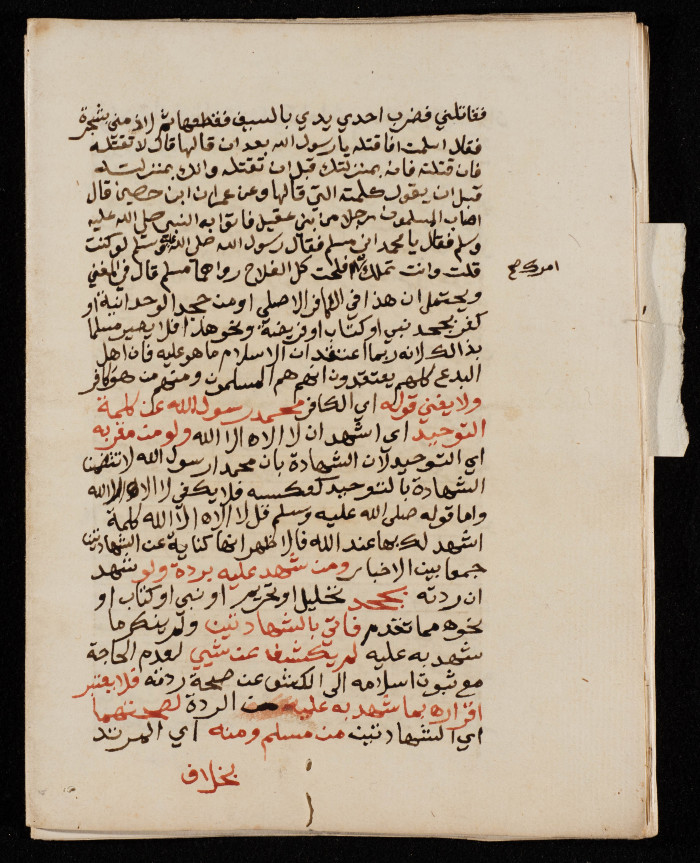 فقاتلني فضرب احدي يدي بالسيف فقطعها ثم لاذ مني بشجرة
فقال اسلمت افاقتله يا رسول الله بعد ان قالها قال لا تقتله
فان قتلته فانه بمنزلتك قبل ان تقتله وانك بمنزلته
قبل ان يقول كلمته التي قالها وعن عمران ابن حصين قال
اصاب المسلمون رجلا من بني عقيل فاتوا به النبي صلى الله عليه
وسلم فقال يا محمد اني مسلم فقال رسول الله صلى الله عليه وسلم لو كنت
قلت وانت تملك افلحت كل الفلاح رواهما مسلم قال في المغني
امرك صح
ويحتمل ان هذا في الكافر الاصلي او من جحد الوحدانية او
كفر بجحد نبي او كتاب او فريضة ونحو هذا فلا يصير مسلما
بذالك لانه ربما اعتقد ان الاسلام ما هو عليه فان اهل
البدع كلهم يعتقدون انهم هم المسلمون ومنهم من هو كافر
ولا يغني قوله اي الكافر محمد رسول الله عن كلمة
التوحيد اي اشهد ان لا الاه الا الله ولو من مقر به
اي التوحيد لان الشهادة بان محمد ارسول الله لا تتضمن
الشهادة بالتوحيد كعكسه فلا يكفي لا الاه الا الله
واما قوله صلى الله عليه وسلم قل لا الاه الا الله كلمة
اشهد لك بها عند الله فالاظهر انها كناية عن الشهادتين
جمعا بين الاخبار ومن شهد عليه بردة ولو شهد
ان ردته بجحد تحليل او تحريم او نبي او كتاب او
نحوه مما تقدم فاتي بالشهادتين ولم ينكر ما
شهد به عليه لم يكشف عن شيي لعدم الحاجة
مع ثبوت اسلامه الى الكشف عن صحة ردته فلا يعتبر
اقراره بما شهد به عليه من الردة لصحتهما
اي الشهادتين من مسلم ومنه اي المرتد
بخلاف